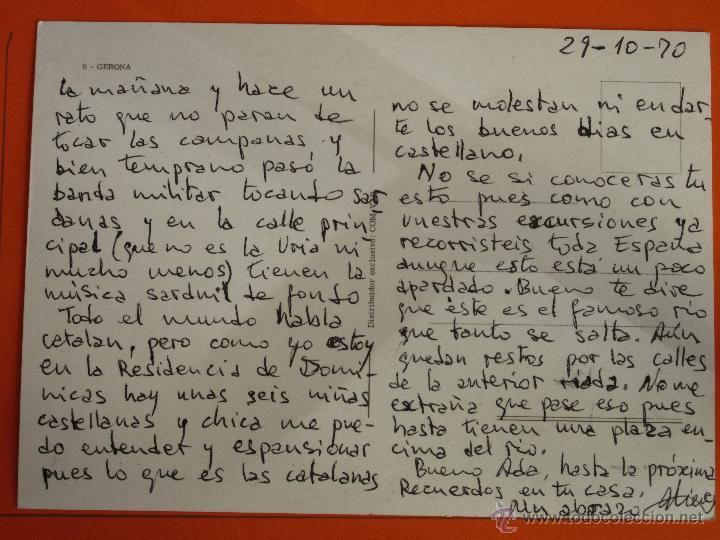 29-10-70
6 - GERONA
la mañana y hace un
rato que no paran de
tocar las campanas y
bien temprano pasó la
banda militar tocando sar
danas y en la calle prin
cipal (que no es la Uria ni
mucho menos) tienen la
música sardnil de fondo
Todo el mundo habla
catalan, pero como yo estoy
en la Residencia de Domi
nicas hay unas seis niñas
castellanas y chica me pue-
do entender y espansionar
pues lo que es las catalanas
Distribuidor exclusivo:
no se molestan ni en dar-
te los buenos dias en
castellano.
No se si conoceras tu
esto pues como con
vuestras excursiones ya
recorristeis toda España
aunque esto está un poco
apartado. Bueno te dire
que éste es el famoso rio
que tanto se salta. Aún
quedan restos por las calles
de la anterior riada. No me
extraña que pase eso pues
hasta tienen una plaza en-
cima del rio.
Bueno Ada, hasta la próxima
Recuerdos en tu casa.
Un abrazo
todocoleccion.net